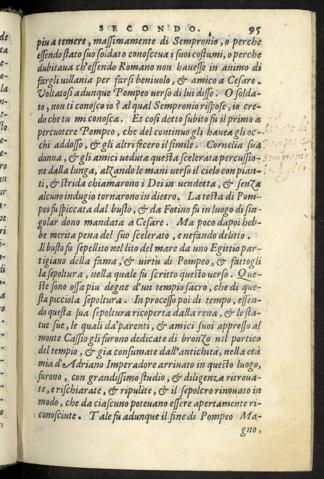 SECONDO. 95
piu a temere, massimamente di Sempronio, o perche
essendo stato suo soldato conosceua i suoi costumi, o perche
dubitaua ch'essendo Romano non hauesse in animo di
fargli uillania per farsi beniuolo, & amico a Cesare.
Voltatosi adunque Pompeo uerso di lui disse. O solda-
to, non ti conosco io? al qual Sempronio rispose, io cre-
do che tu mi conosca. Et cosi detto subito fu il primo a
percuotere Pompeo, che del continuo gli hauea gli oc-
chi addosso, & gli altri fecero il simile. Cornelia sua
donna, & gli amici ueduta questa scelerata percussio-
ne dalla lunga, alzando le mani uerso il cielo con pian-
ti, & strida chiamarono i Dei in uendetta, & senza
alcuno indugio tornarono in dietro. La testa di Pom-
peo fu spiccata dal busto, & da Fotino fu in luogo di sin-
golar dono mandata a Cesare. Ma poco dapoi heb-
be merita pena del suo scelerato, e nefando delitto.
Il busto fu sepellito nel lito del mare da uno Egittio par-
tigiano della fama, & uirtu di Pompeo, & fattogli
la sepoltura, nella quale fu scritto questo uerso. Que-
ste sono ossa piu degne d'un tempio sacro, che di que-
sta picciola sepoltura. In processo poi di tempo, essen-
do questa sua sepoltura ricoperta dalla rena, & le sta-
tue sue, le quali da'parenti, & amici suoi appresso al
monte Cassio gli furono dedicate di bronzo nel portico
del tempio, & gia consumate dall'antichità, nella età
mia d'Adriano Imperadore arriuato in questo luogo,
furono, con grandissimo studio, & diligenza ritroua-
te, e rischiarate, & ripulite, & il sepolcro rinouato in
modo, che da ciascuno poteuano essere apertamente ri-
conosciute. Tale fu adunque il fine di Pompeo Ma-
gno,